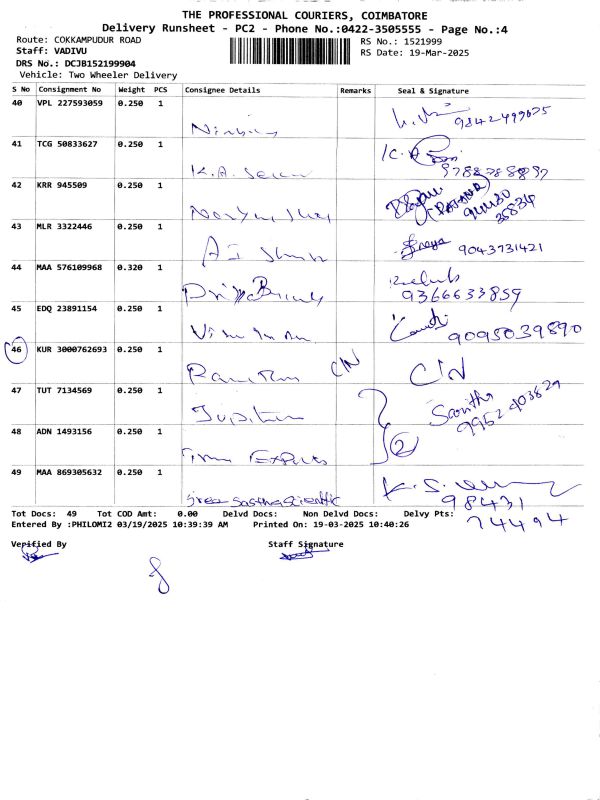 THE PROFESSIONAL COURIERS, COIMBATORE
Delivery Runsheet - PC2 - Phone No.:0422-3505555 - Page No.:4
Route: COKKAMPUDUR ROAD
RS No.: 1521999
Staff: VADIVU
RS Date: 19-Mar-2025
DRS No.: DCJB152199904
Vehicle: Two Wheeler Delivery
S No Consignment No Weight PCS Consignee Details Remarks Seal & Signature
40 VPL 227593059 0.250 1
41 TCG 50833627 0.250 1
K.A.
42 KRR 945509 0.250 1
43 MLR 3322446 0.250 1 9043731421
44 MAA 576109968 0.320 1
9366633859
45 EDQ 23891154 0.250 1
9095039890
46 KUR 3000762693 0.250 1 CIN CIN
47 TUT 7134569 0.250 1 Savitha
Jupiter 9952403829
48 ADN 1493156 0.250 1 2
Exports
49 MAA 869305632 0.250 1 K.S.
Sree Sastha Scientific 98431
74494
Tot Docs: 49 Tot COD Amt: 0.00 Delvd Docs: Non Delvd Docs: Delvy Pts:
Entered By :PHILOMI2 03/19/2025 10:39:39 AM Printed On: 19-03-2025 10:40:26
Verified By Staff Signature